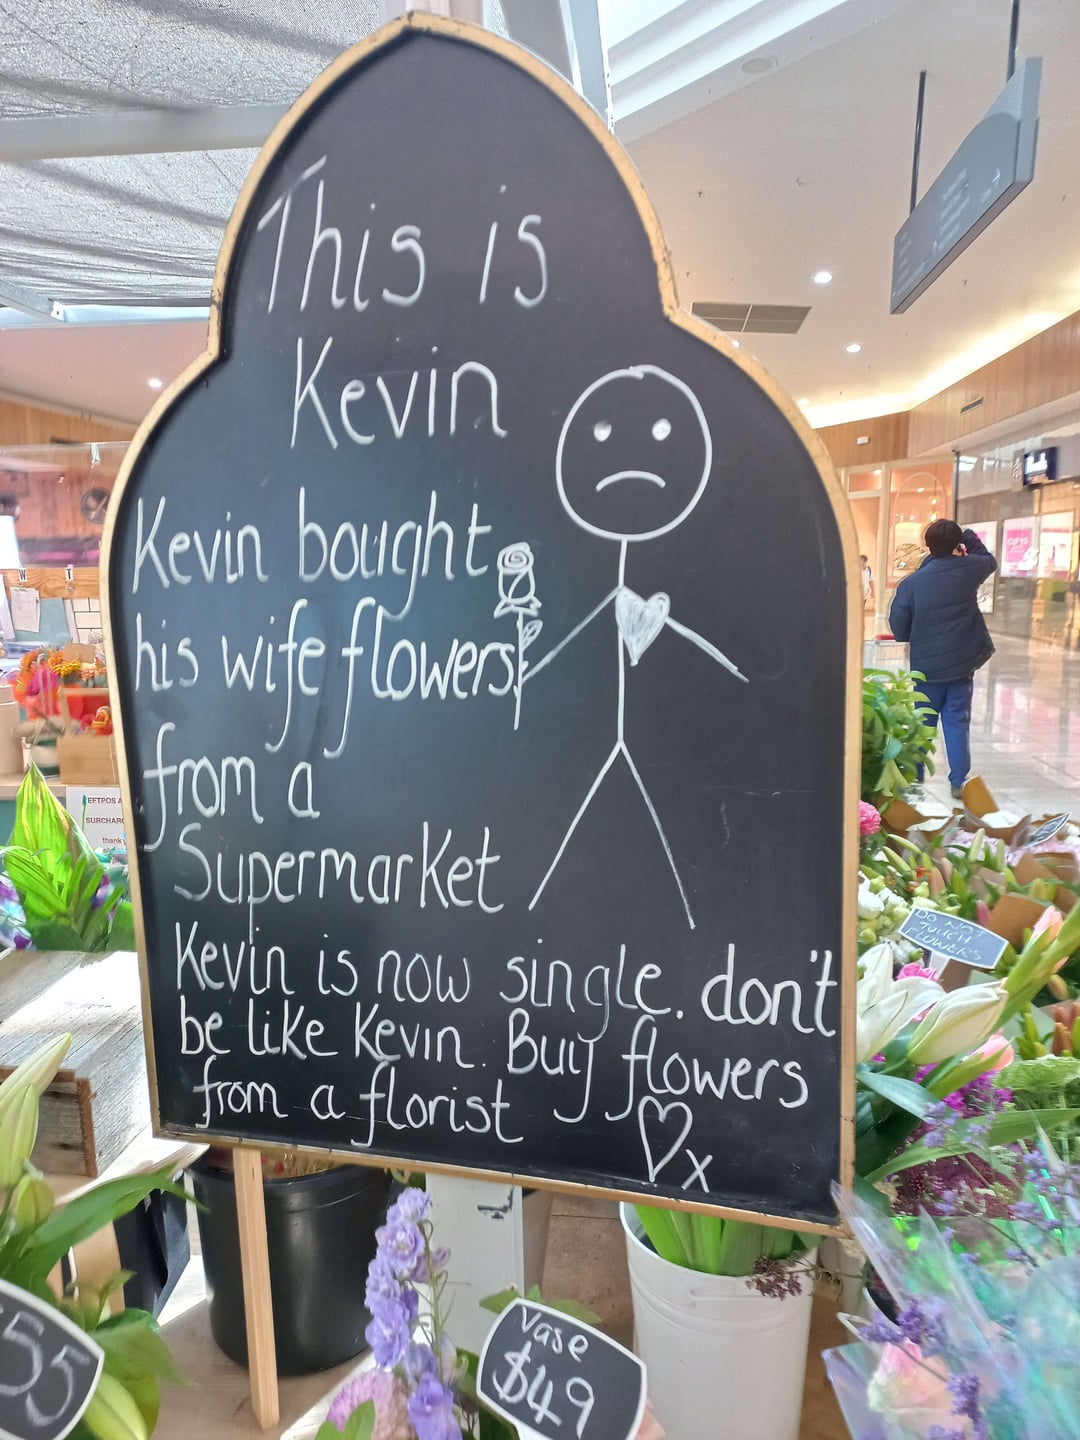 This is
Kevin
Kevin bought
his wife flowers
from a
Supermarket
Kevin is now single. don't
be like Kevin. Buy flowers
from a florist
x
EFTPOS A
SURCHAR
thank
DO NOT
TOUCH
FLOWERS
Vase
$49
55